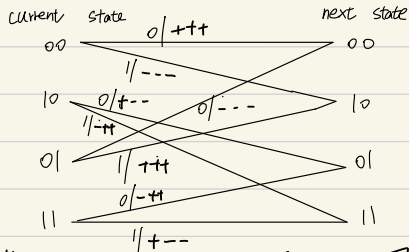 current state next state
0/+++
00 00
1/---
10 0/+-- 0/--- 10
1/-++
01 01
1/+++
0/-++
11 11
1/+--